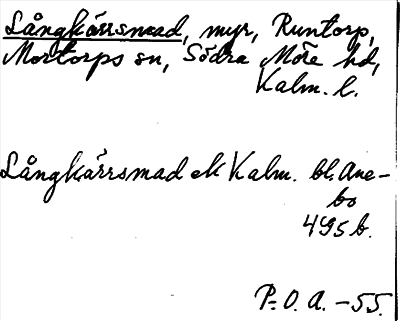 Långkärrsmad, myr, Runtorp,
Mortorps sn, Södra Möre hd,
Kalm. l.
Långkärrsmad ek Kalm. bl. Ane-
bo
495b.
P. O. A. -55.